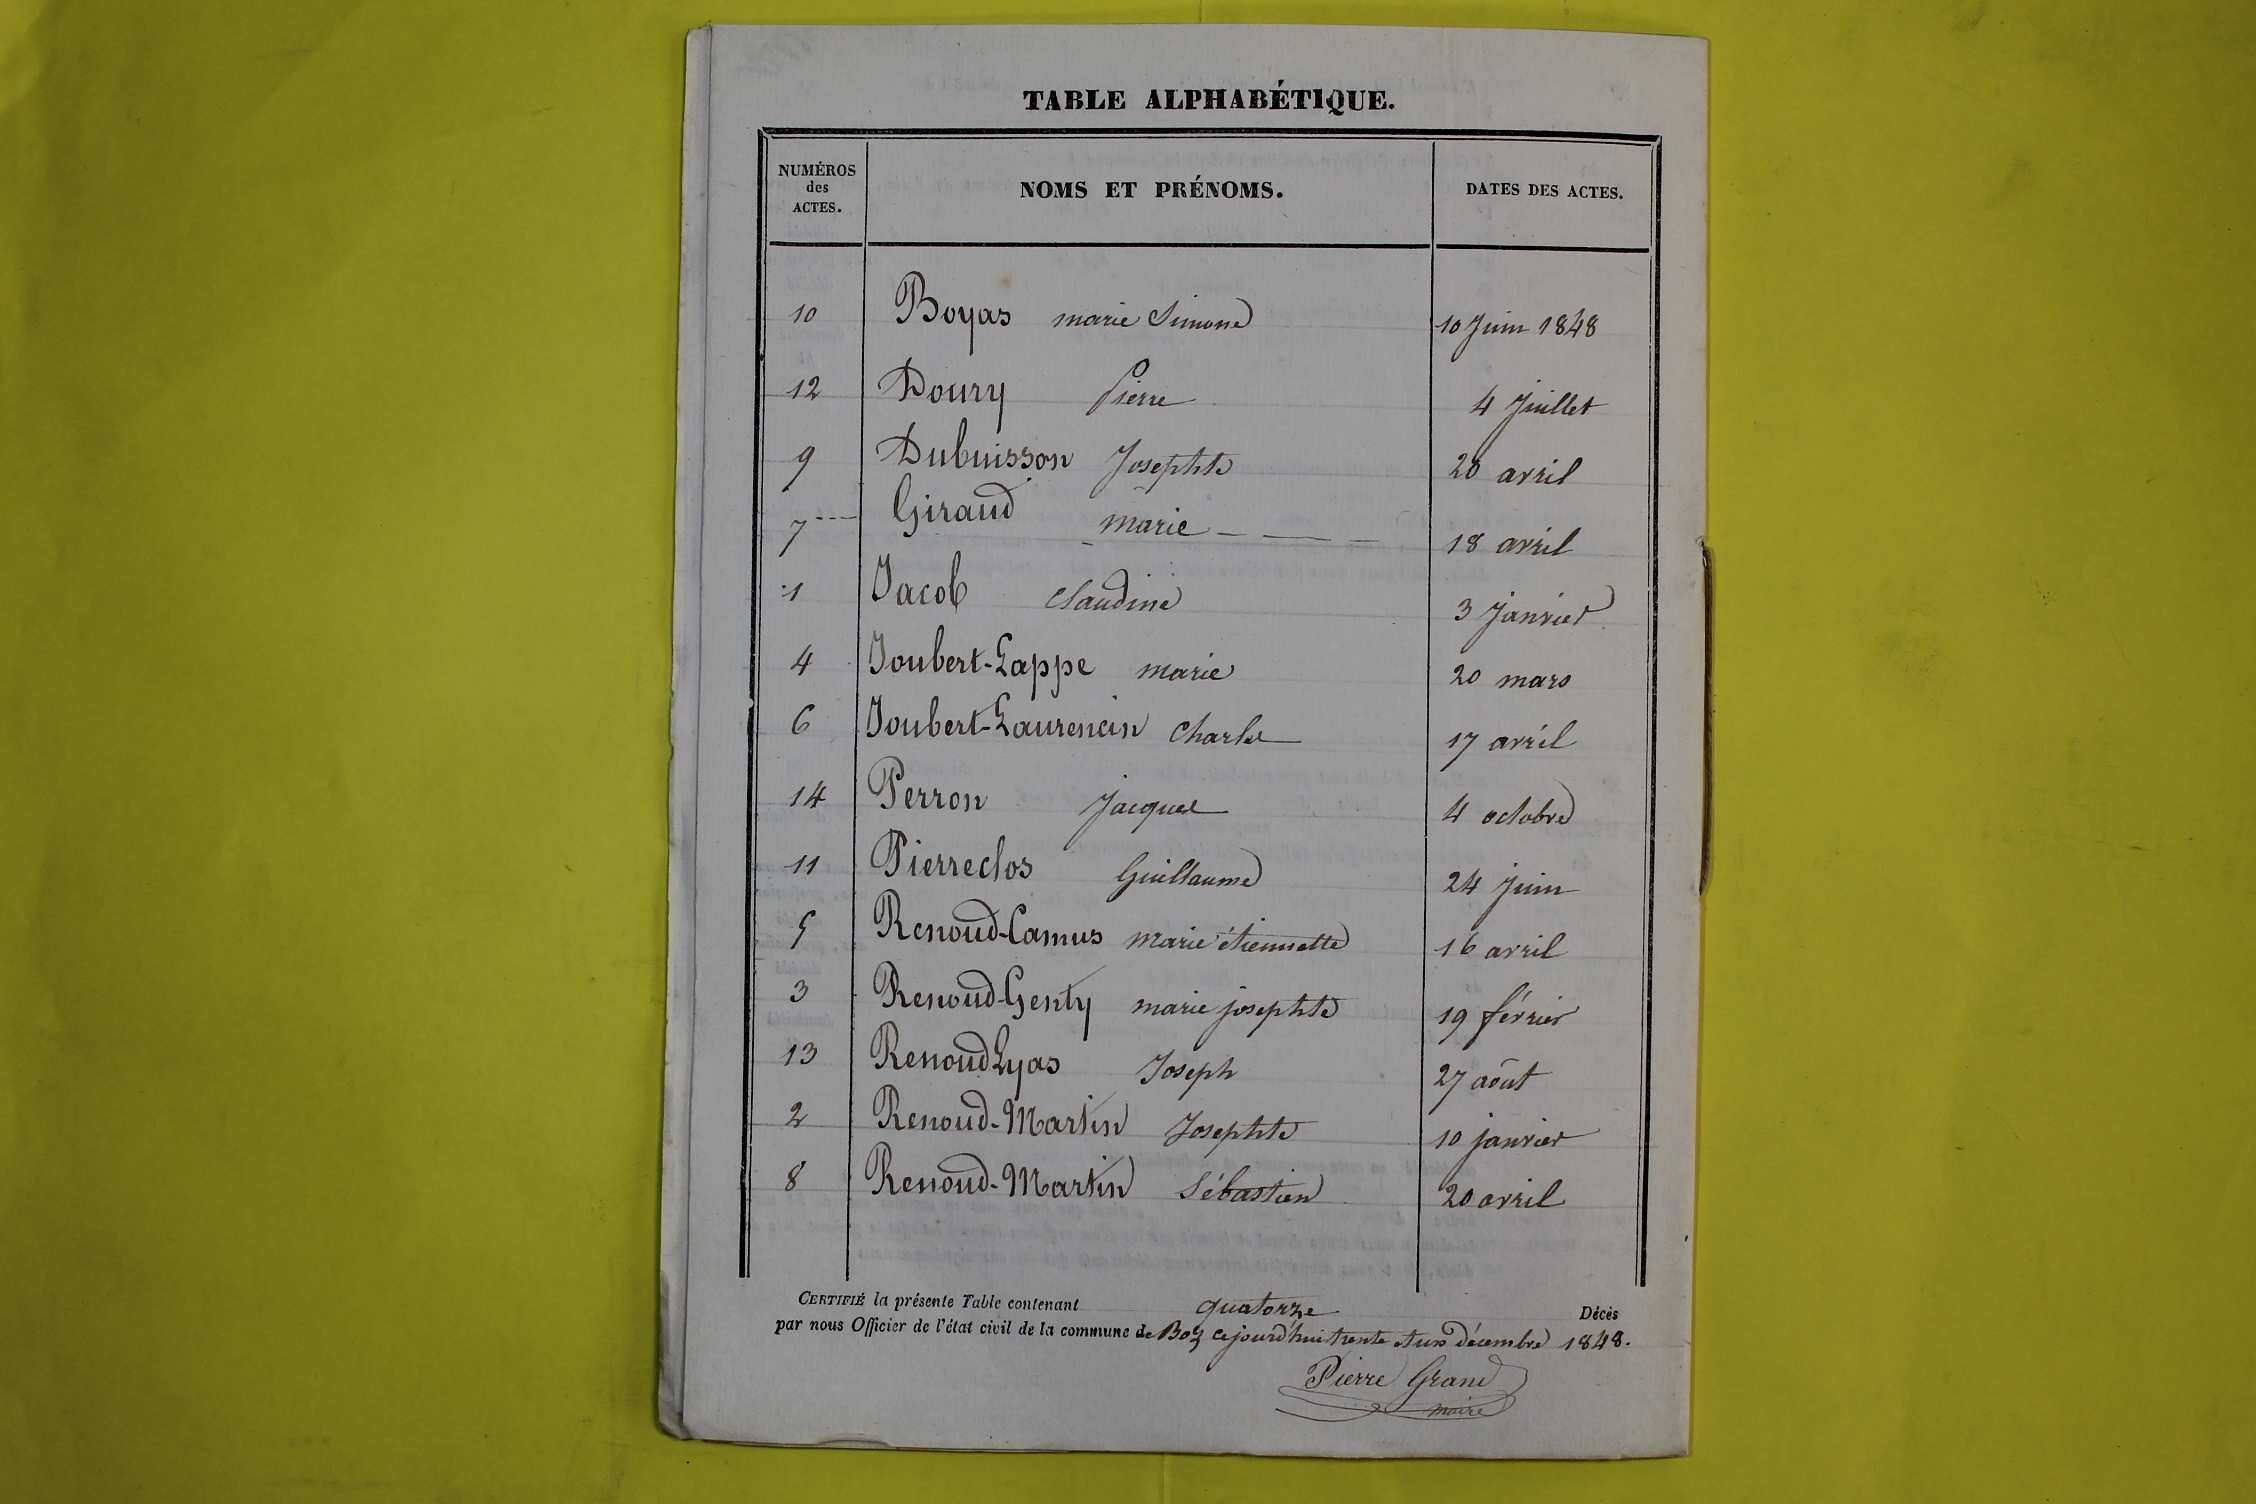 TABLE ALPHABÉTIQUE.
NUMÉROS des ACTES. NOMS ET PRÉNOMS. DATES DES ACTES.
10 Boyas marie Simone 10 Juin 1848
12 Doury Pierre 4 Juillet
9 Dubuisson Josephte 20 avril
7 Giraud marie 18 avril
1 Jacob Claudine 3 Janvier
4 Joubert-Lappe marie 20 mars
6 Joubert-Laurencin Charles 17 avril
14 Perron Jacques 4 octobre
11 Pierreclos Guillaume 24 Juin
5 Renoud-Camus marie étiennette 16 avril
3 Renoud-Genty marie josephte 19 février
13 Renoud Lyas Joseph 27 août
2 Renoud-Martin Josephte 10 janvier
8 Renoud-Martin Sébastien 20 avril
CERTIFIÉ la présente Table contenant quatorze Décès
par nous Officier de l'état civil de la commune de Boz cejourd'hui trente et un décembre 1848.
Pierre Grand
maire